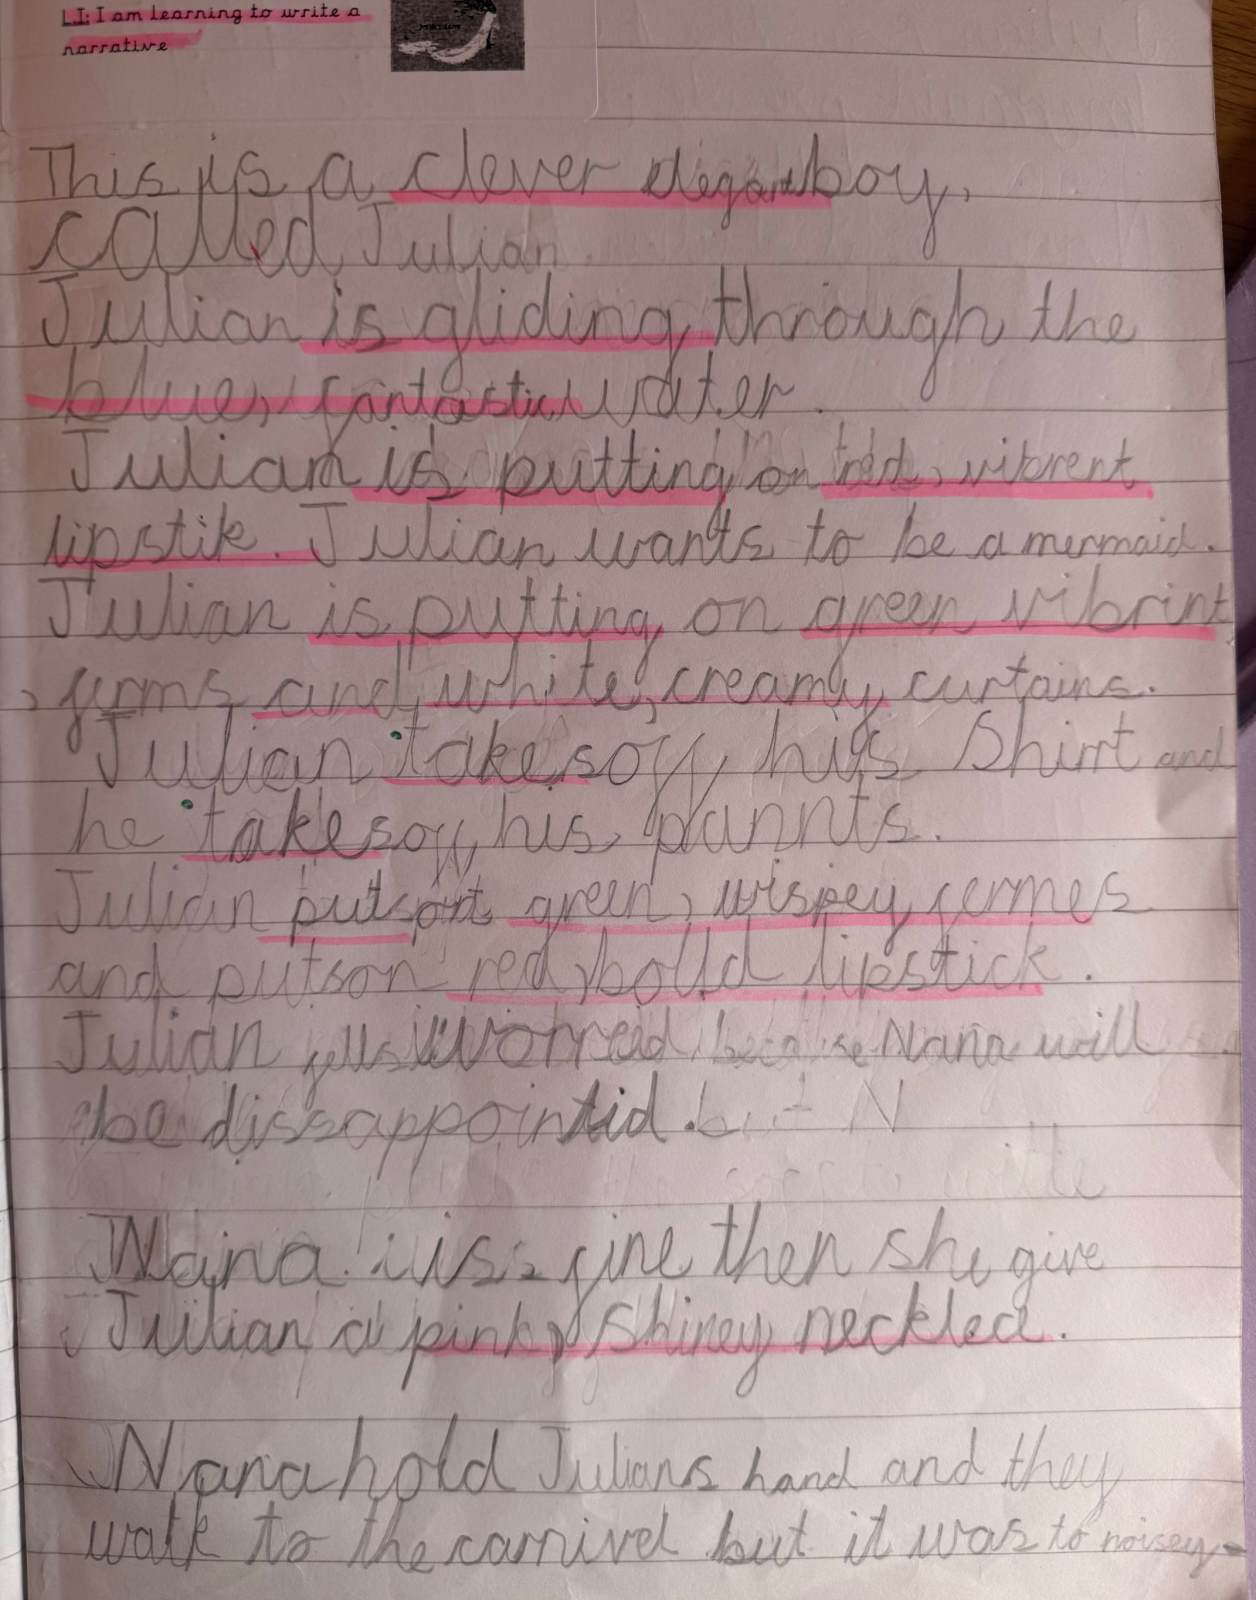 LI: I am learning to write a
narrative
This is a clever elegant boy,
called Julian.
Julian is gliding through the
blue, fantastic water.
Julian is putting on red, vibrent
lipstik. Julian wants to be a mermaid.
Julian is putting on green vibrint
, ferms and white, creamy curtains.
Julian takes off his Shirt and
he takes off his pannts.
Julian puts on green, wispey fermes
and puts on red, bolld lipstick.
Julian fells worreid because Nana will
be dissappointid. but N
Nana is fine then she give
Julian a pink, Shiney necklece.
Nana hold Julians hand and they
walk to the carnivel but it was to noisey.